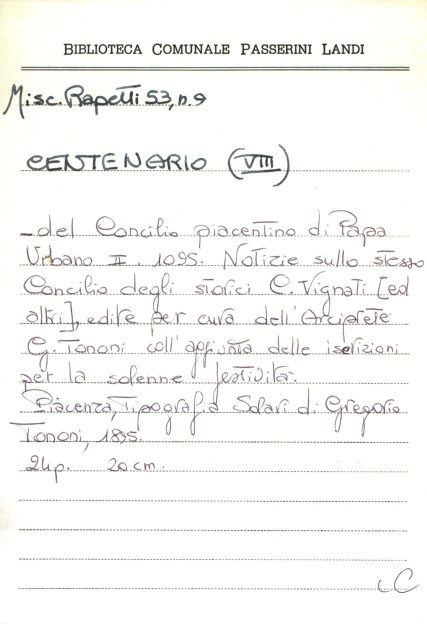 BIBLIOTECA COMUNALE PASSERINI LANDI
Misc. Rapetti 53, n. 9
CENTENARIO (VIII)
- del Concilio piacentino di Papa
Urbano II. 1095. Notizie sullo stesso
Concilio degli storici C. Vignati [ed
altri], edite per cura dell'Arciprete
G. Tononi coll'aggiunta delle iscrizioni
per la solenne festività.
Piacenza, Tipografia Solari di Gregorio
Tononi, 1895.
24p. 20 cm.